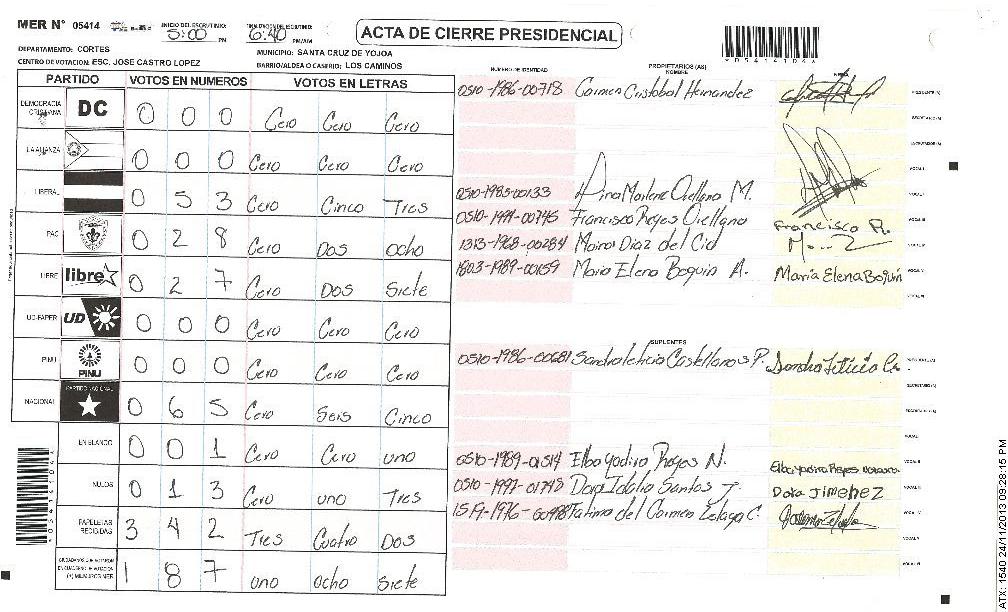 MER N° 05414
INICIO DEL ESCRUTINIO: 5:00 PM
FINALIZACION DEL ESCRUTINIO: 6:40 PM/AM
ACTA DE CIERRE PRESIDENCIAL
*05414104*
DEPARTAMENTO: CORTES
MUNICIPIO: SANTA CRUZ DE YOJOA
CENTRO DE VOTACION: ESC. JOSE CASTRO LOPEZ
BARRIO/ALDEA O CASERIO: LOS CAMINOS
PARTIDO VOTOS EN NUMEROS VOTOS EN LETRAS
DEMOCRACIA CRISTIANA DC 0 0 0 Cero Cero Cero
LA ALIANZA 0 0 0 Cero Cero Cero
LIBERAL 0 5 3 Cero Cinco Tres
PAC 0 2 8 Cero Dos ocho
LIBRE libre 0 2 7 Cero Dos Siete
UD-FAPER UD 0 0 0 Cero Cero Cero
PINU PINU 0 0 0 Cero Cero Cero
NACIONAL PARTIDO NACIONAL 0 6 5 Cero Seis Cinco
EN BLANCO 0 0 1 Cero Cero uno
NULOS 0 1 3 Cero uno Tres
PAPELETAS RECIBIDAS 3 4 2 Tres Cuatro Dos
CIUDADANOS QUE VOTARON EN CUADERNO DE VOTACION (+) MIEMBROS MER 1 8 7 uno ocho Siete
NUMERO DE IDENTIDAD PROPIETARIOS (AS) NOMBRE FIRMA
0510-1986-00718 Carmen Cristobal Hernandez PRESIDENTE (A)
SECRETARIO (A)
ESCRUTADOR (A)
VOCAL I
0510-1985-00133 Dina Marlene Orellana M. VOCAL II
0510-1991-00745 Francisco Reyes Orellana Francisco R. VOCAL III
1313-1968-00284 Maira Diaz del Cid VOCAL IV
1803-1989-00159 Maria Elena Boquin A. María Elena Boquin VOCAL V
VOCAL VI
SUPLENTES
0510-1986-00681 Sandra Leticia Castellanos P. Sandra Leticia Ca. PRESIDENTE (A)
SECRETARIO (A)
ESCRUTADOR (A)
VOCAL I
0510-1989-01514 Elba Yadira Reyes N. Elba Yadira Reyes VOCAL II
0510-1997-01748 Dora Idalia Santos J. Dora Jimenez VOCAL III
1519-1976-00498 Fatima del Carmen Zelaya C. VOCAL IV
VOCAL V
VOCAL VI
*05414104*
ATX: 1540 24/11/2013 09:28:15 PM